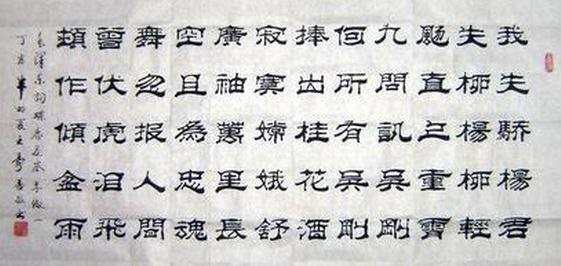 我失驕楊君
失柳楊柳輕
颺直上重霄
九問訊吳剛
何所有吳剛
捧出桂花酒
寂寞嫦娥舒
廣袖萬里長
空且為忠魂
舞忽报人間
曾伏虎泪飛
頓作傾盆雨
毛澤東詞蝶恋花答李淑一
丁亥年初夏